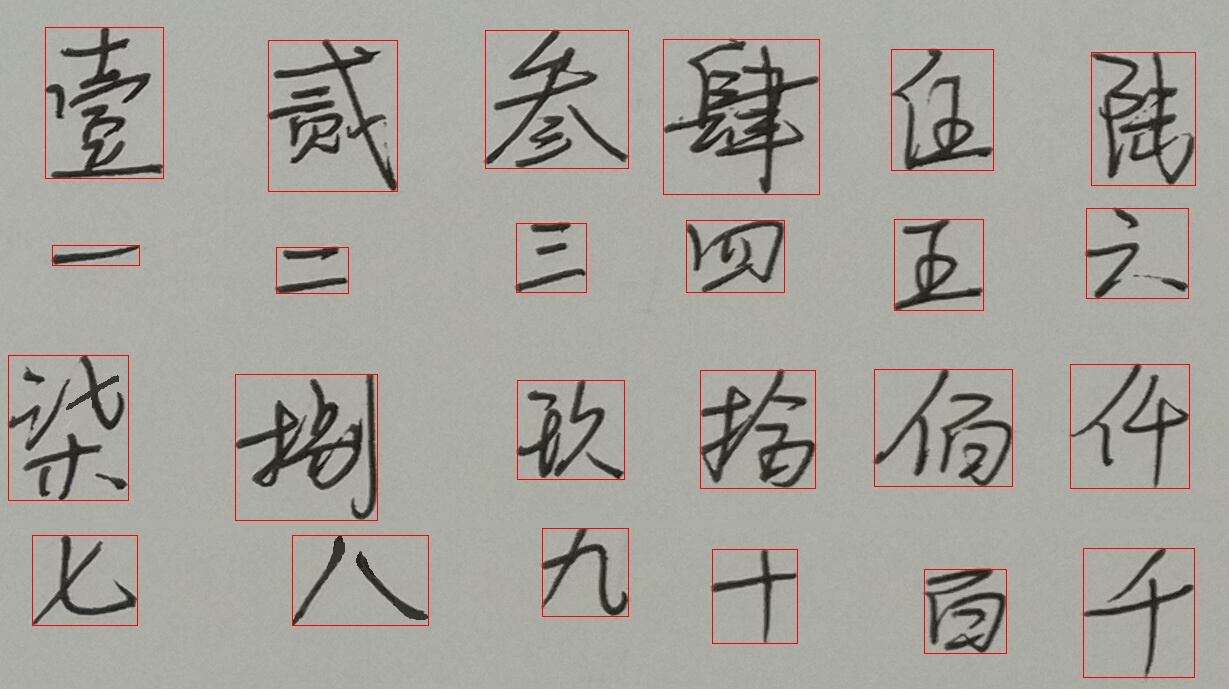 壹贰叁肆伍陆
一二三四五六
柒捌玖拾佰仟
七八九十百千